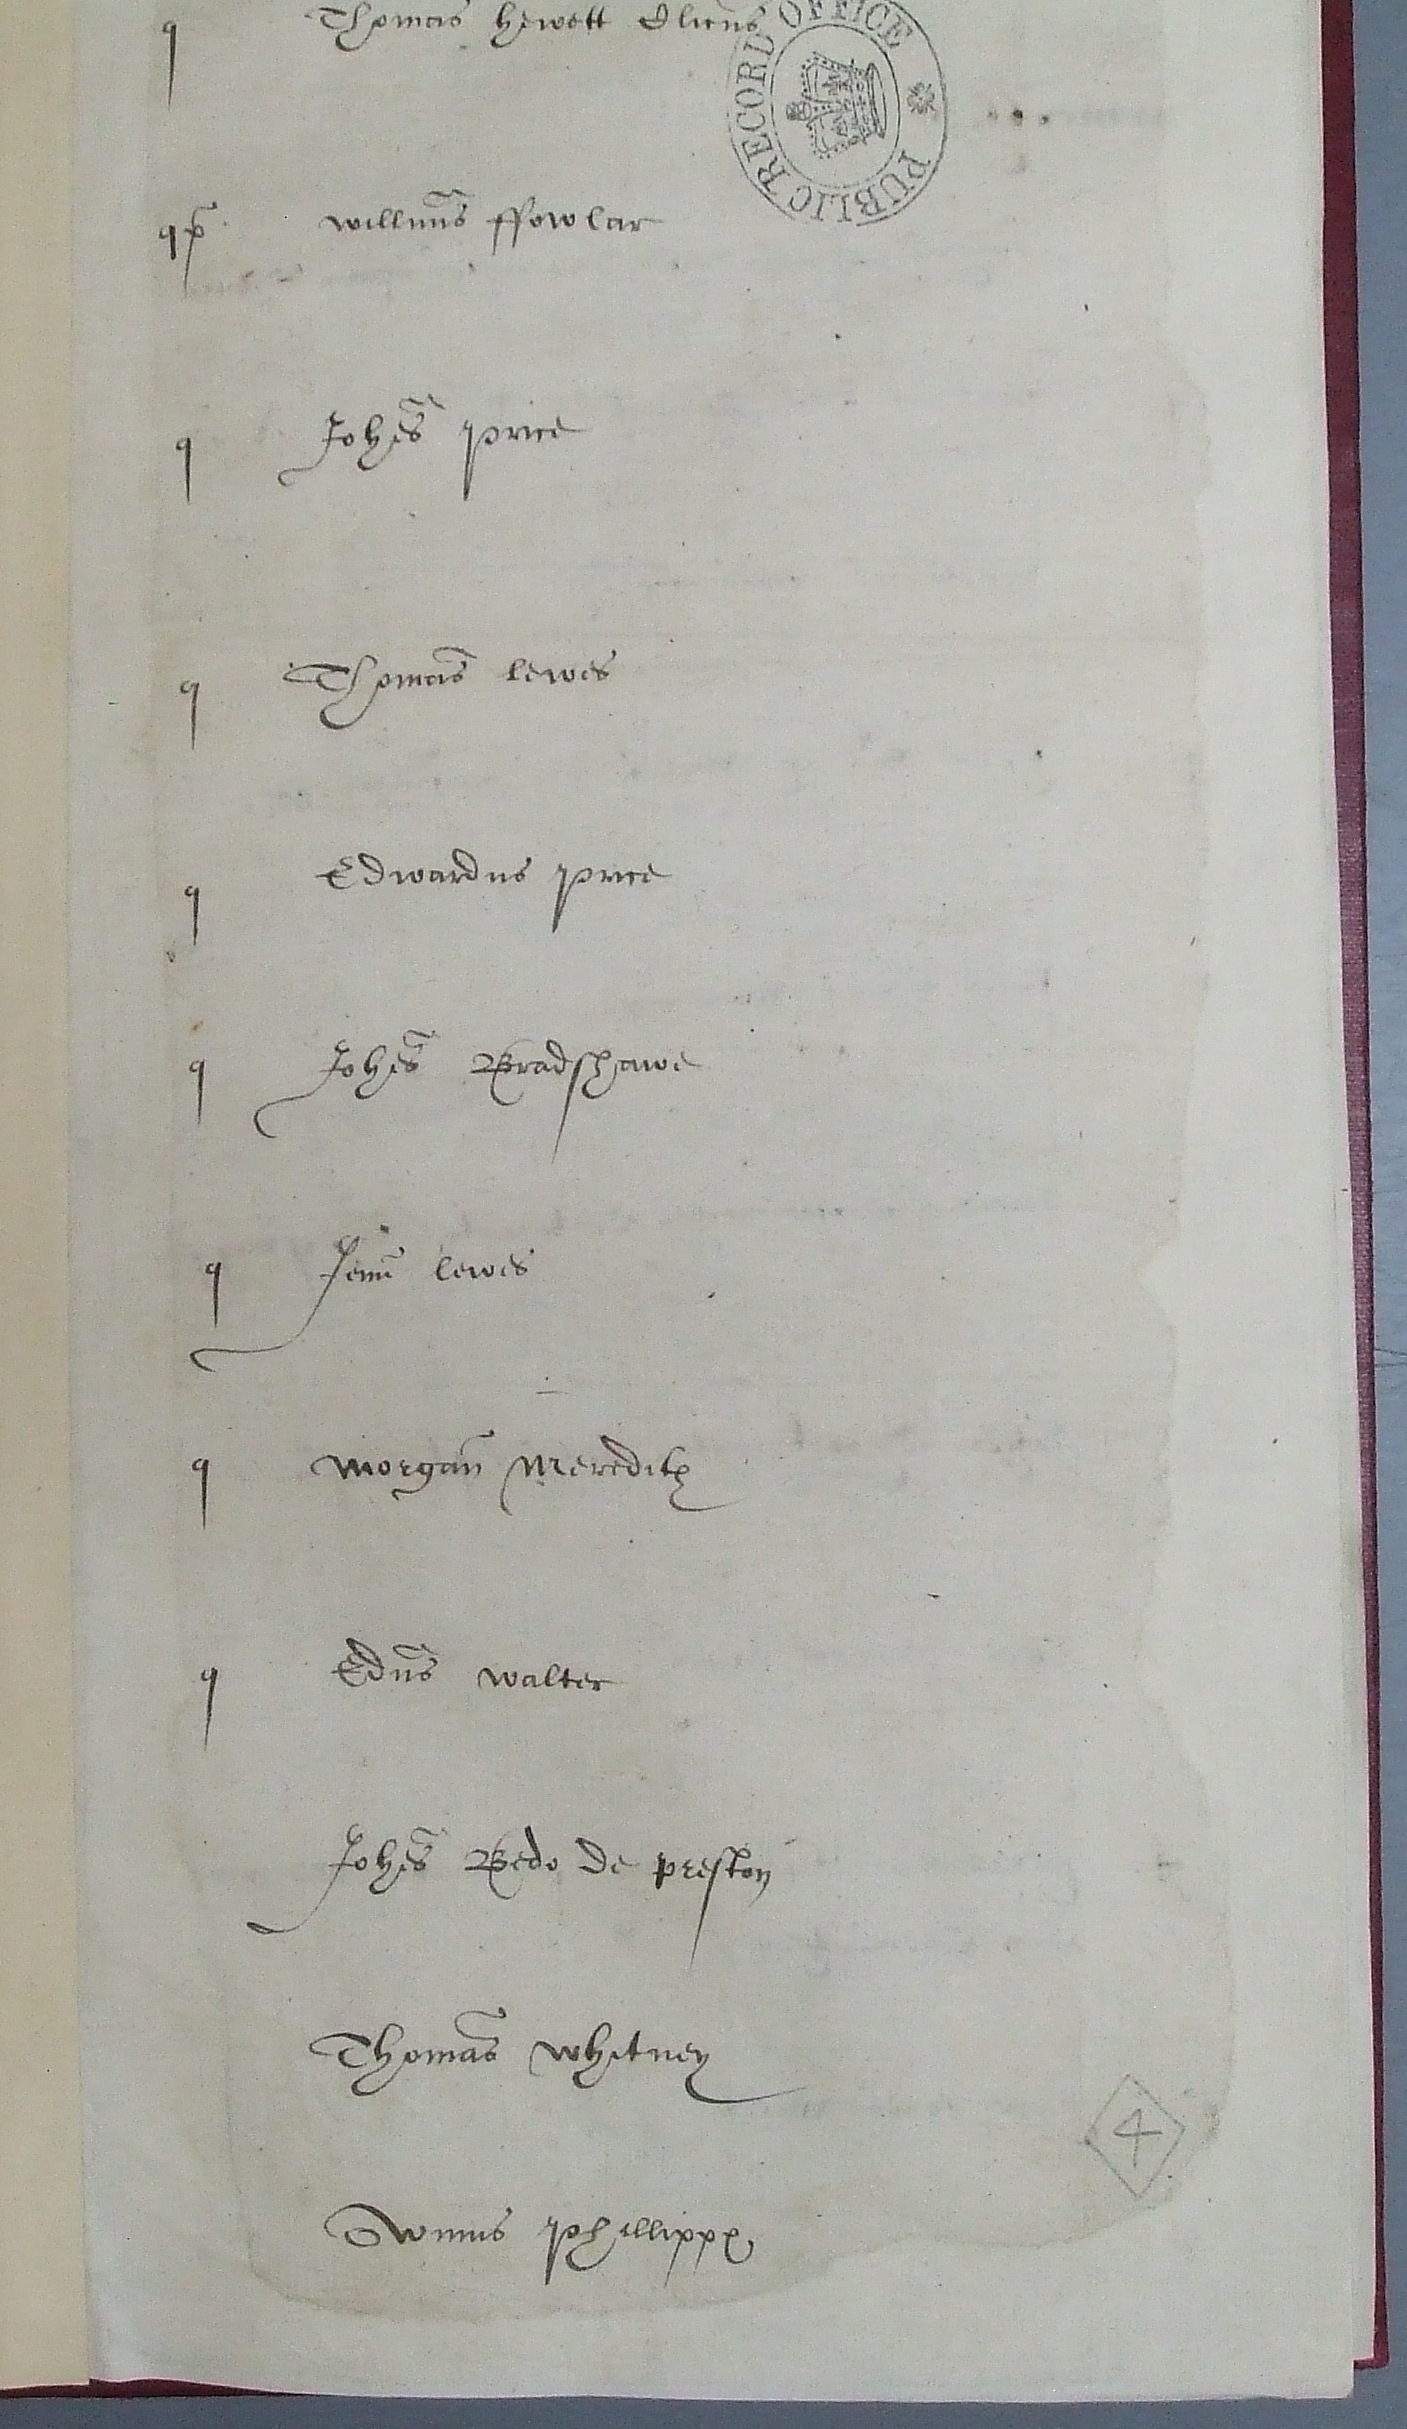 q Thomas Hewett Clicus
PUBLIC RECORD OFFICE
qp Willims ffowlar
q Johes Price
q Thomas Lewes
q Edwardus Price
q Johes Bradshawe
q Jeun Lewes
q Morgan Meredith
q Edus Walter
Johes Bedo de Preston
Thomas Whitney
Owinus Phillipps
4